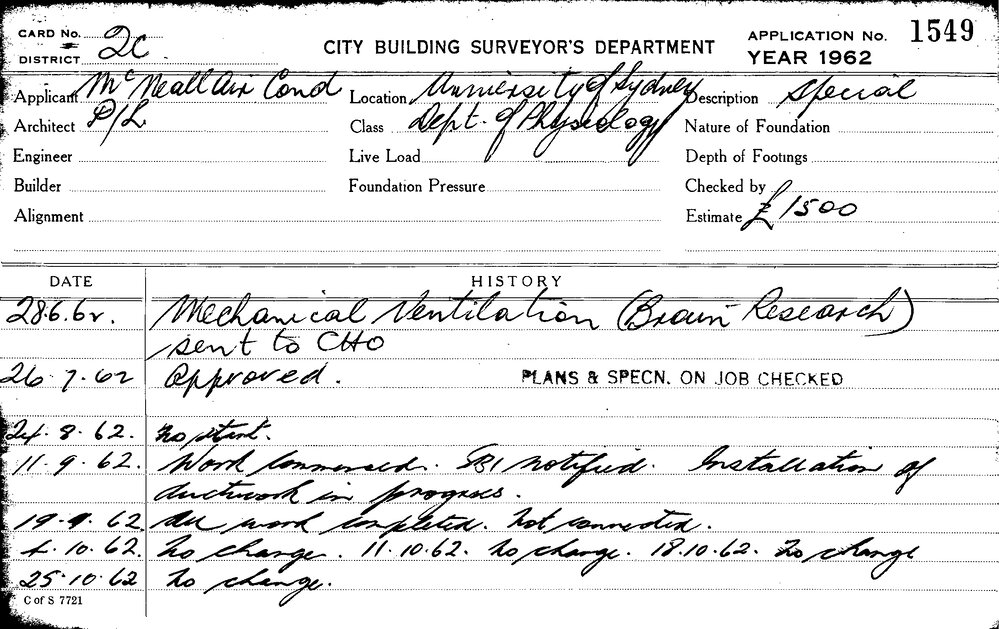 CARD No. 2C
DISTRICT
CITY BUILDING SURVEYOR'S DEPARTMENT
APPLICATION No. 1549
YEAR 1962
Applicant McNeall Air Cond
Location University of Sydney
Description Special
Architect P/L
Class Dept. of Physiology
Nature of Foundation
Engineer
Live Load
Depth of Footings
Builder
Foundation Pressure
Checked by
Alignment
Estimate £1500
DATE
HISTORY
28.6.62. Mechanical Ventilation (Brain Research)
sent to CHO
26.7.62 Approved. PLANS & SPECN. ON JOB CHECKED
24.8.62. No start.
11.9.62. Work commenced. SBI notified. Installation of
ductwork in progress.
19.9.62. All work completed. Not connected.
4.10.62. No change. 11.10.62. No change. 18.10.62. No change
25.10.62 No change.
C of S 7721